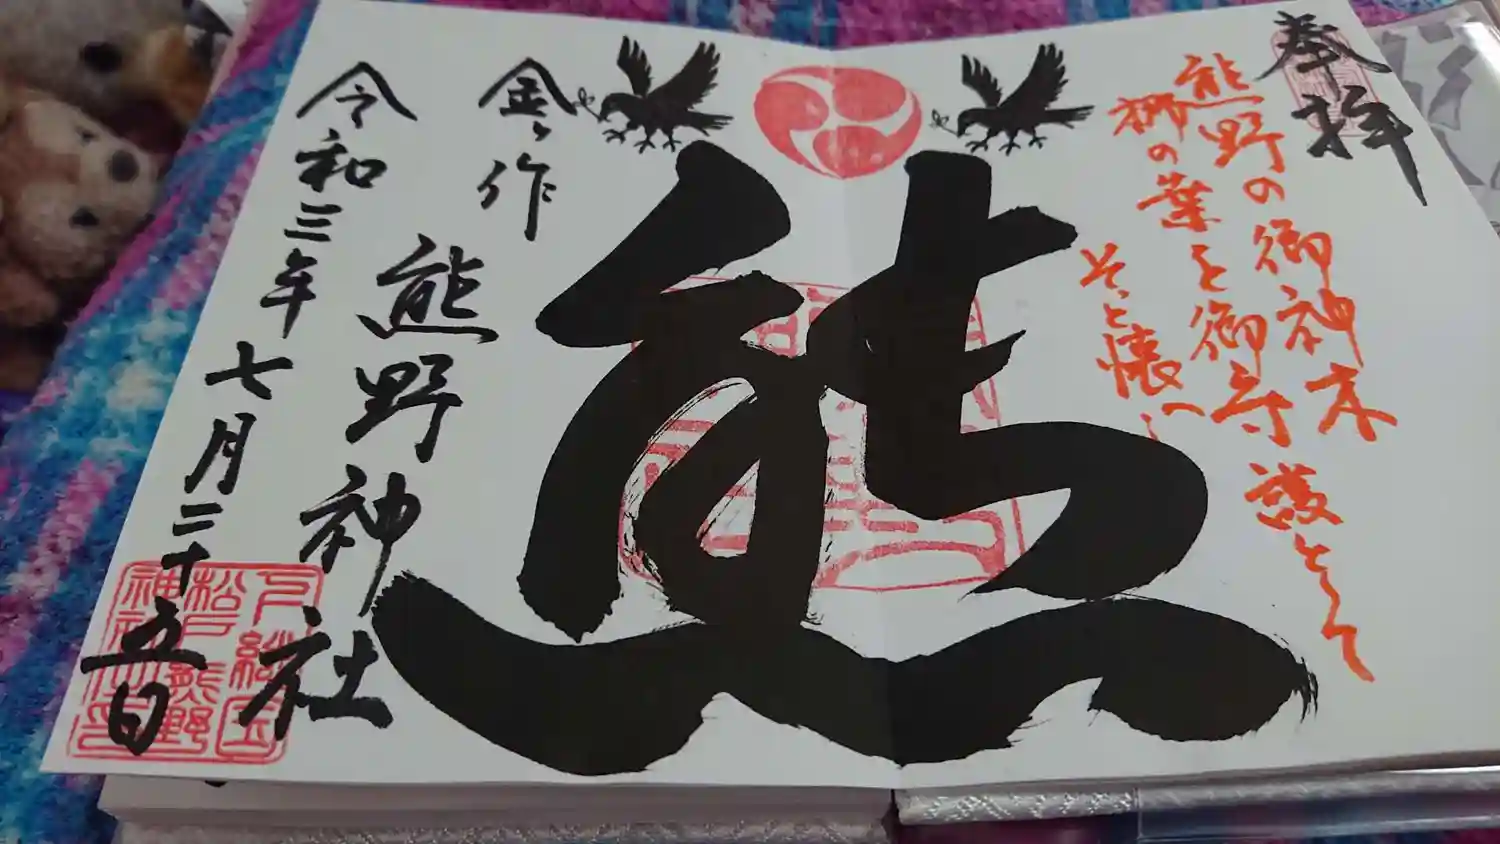 奉拝
熊野の御神木
梛の葉を御守護として
そっと懐へ
熊
金ヶ作
熊野神社
令和三年七月二十五日
下総国
松戸熊野
神社